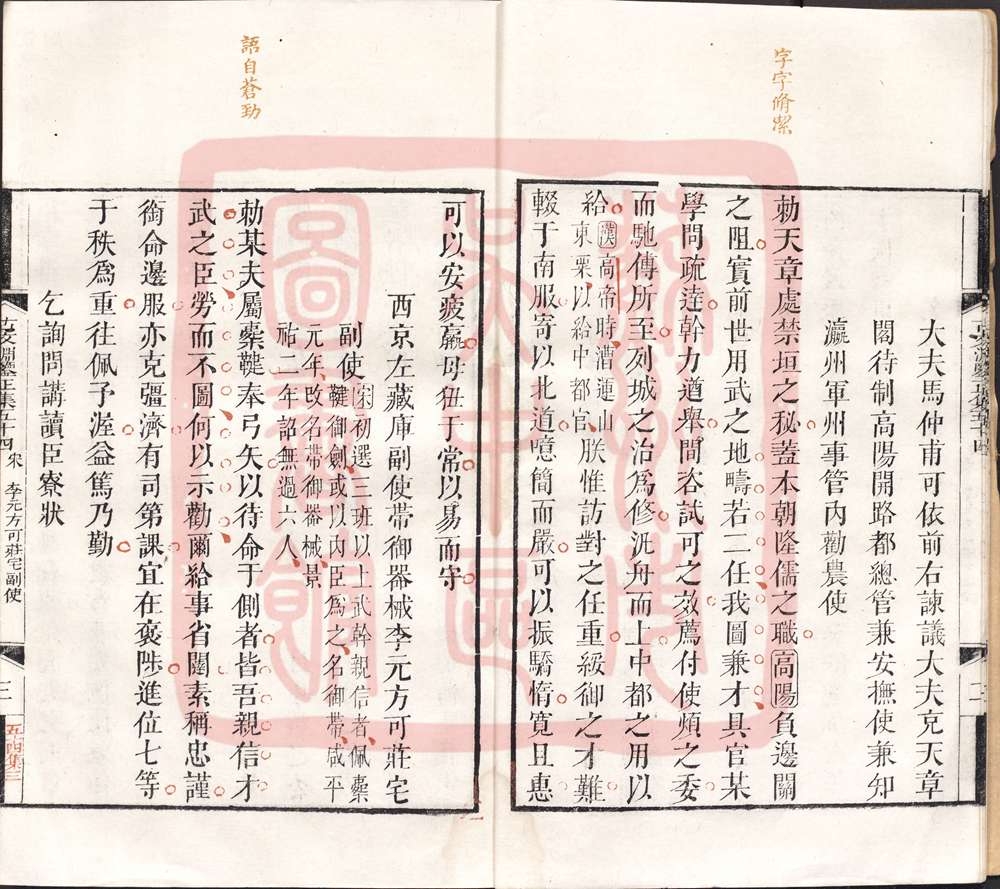 字字脩潔
大夫馬仲甫可依前右諫議大夫充天章
閣待制高陽關路都總管兼安撫使兼知
瀛州軍州事管內勸農使
勅天章處禁垣之秘蓋本朝隆儒之職高陽負邊關
之阻實前世用武之地疇若二任我圖兼才具官某
學問疏達幹力遒舉間咨試可之效薦付使煩之委
而馳傳所至列城之治為修汎舟而上中都之用以
給漢高帝時漕運山
東粟以給中都官朕惟訪對之任重綏御之才難
輟于南服寄以北道噫簡而嚴可以振驕惰寬且惠
語自蒼勁
可以安疲羸毋狃于常以易而守
西京左藏庫副使帶御器械李元方可莊宅
副使宋初選三班以上武幹親信者佩櫜
鞬御劍或以內臣為之名御帶咸平
元年改名帶御器械景
祐二年詔無過六人
勅某夫屬櫜鞬奉弓矢以待命于側者皆吾親信才
武之臣勞而不圖何以示勸爾給事省闥素稱忠謹
銜命邊服亦克彊濟有司第課宜在褒陟進位七等
于秩為重往佩予渥益篤乃勤
乞詢問講讀臣寮狀
古文淵鑒正集五十四 宋 李元方可莊宅副使
三
五十四集三